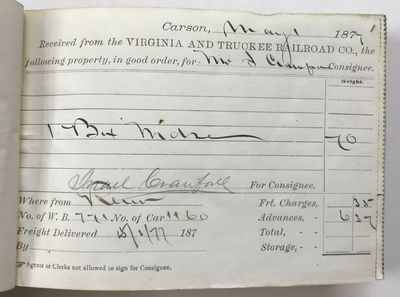 Carson, May 1 1877 1
Received from the VIRGINIA AND TRUCKEE RAILROAD CO., the
following property, in good order, for Mr I Crawford Consignee.
Weight.
1 Box Mdse 70
Israel Crawford For Consignee.
Where from Reno Frt. Charges, 35
No. of W. B. 771 No. of Car 1160 Advances, - 6 37
Freight Delivered 5/1/77 187 Total, - -
By Storage, - -
Agents or Clerks not allowed to sign for Consignee.